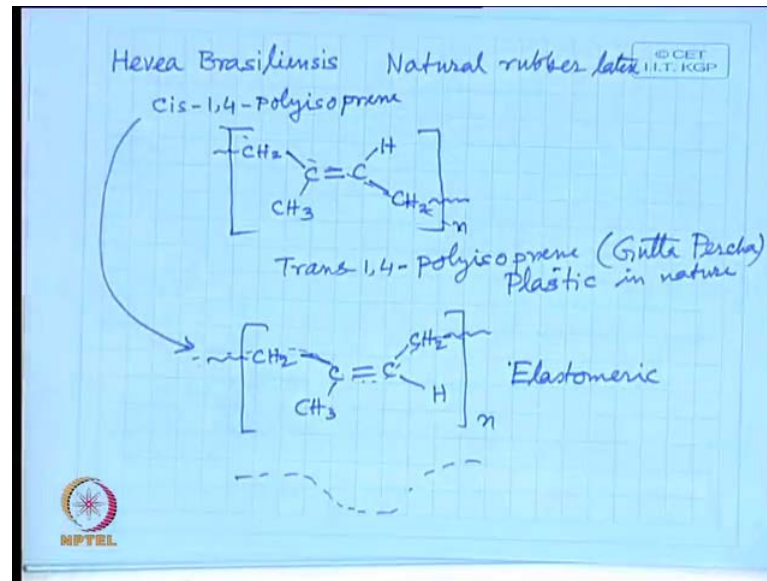 Hevea Brasiliensis Natural rubber latex
© CET
I.I.T. KGP
Cis-1,4-Polyisoprene
CH2 H
C=C
CH3 CH2
n
Trans 1,4-polyisoprene (Gutta Percha)
Plastic in nature
CH2 CH2
C=C Elastomeric
CH3 H
n
NPTEL